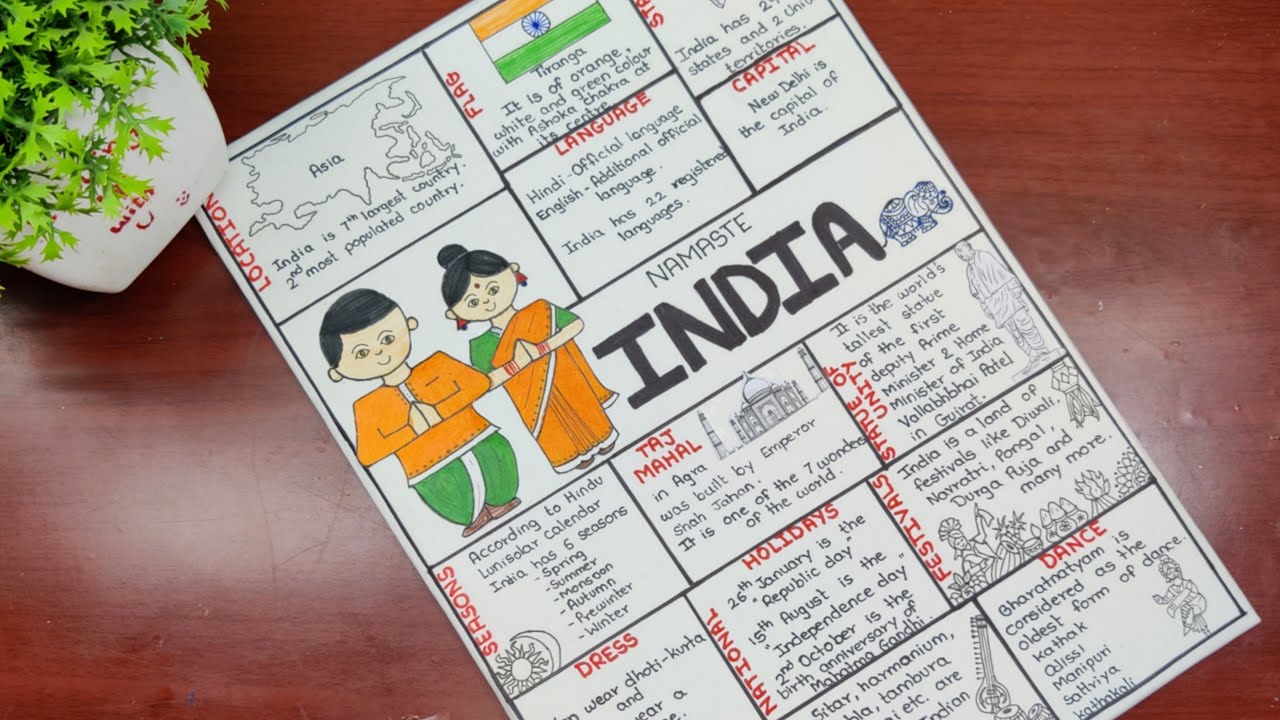 LOCATION
Asia
India is 7th largest country.
2nd most populated country.
FLAG
Tiranga
It is of orange,
white and green colour
with Ashoka Chakra at
its centre.
India has
states and 2 Union
territories.
CAPITAL
New Delhi is
the capital of
India.
LANGUAGE
Hindi-Official language
English-Additional official
language.
India has 22 registered
languages.
NAMASTE
INDIA
TAJ
MAHAL
in Agra
was built by Emperor
Shah Jahan.
It is one of the 7 wonders
of the world.
STATUE OF
UNITY
It is the world's
tallest statue
of the first
deputy Prime
Minister & Home
Minister of India
Vallabhbhai Patel
in Gujrat.
SEASONS
According to Hindu
Lunisolar calendar
India has 6 seasons
-Spring
-Summer
-Monsoon
-Autumn
-Prewinter
-Winter
NATIONAL
HOLIDAYS
26th January is the
"Republic day"
15th August is the
"Independence day"
2nd October is the
birth anniversary of
Mahatma Gandhi.
FESTIVALS
India is a land of
festivals like Diwali,
Navratri, Pongal,
Durga Puja and
many more.
DRESS
wear dhoti-kurta
and
wear a
DANCE
Bharatnatyam is
considered as the
oldest form of dance.
Kathak
Odissi
Manipuri
Sattriya
Kathakali
Sitar, harmonium,
tambura
etc. are
Indian